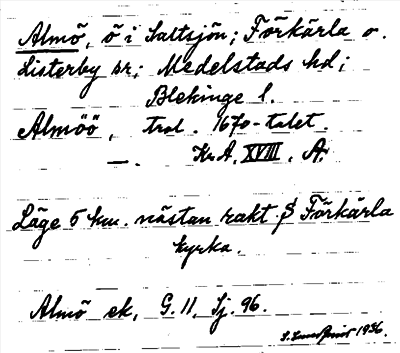 Almö, ö i Saltsjön; Förkärla o.
Listerby sr; Medelstads hd;
Blekinge l.
Almöö, trol. 1670-talet.
—. Kr A, XVIII, A.
Läge 5 km. nästan rakt S Förkärla
kyrka.
Almö ek, G. 11, Sj. 96.
1936